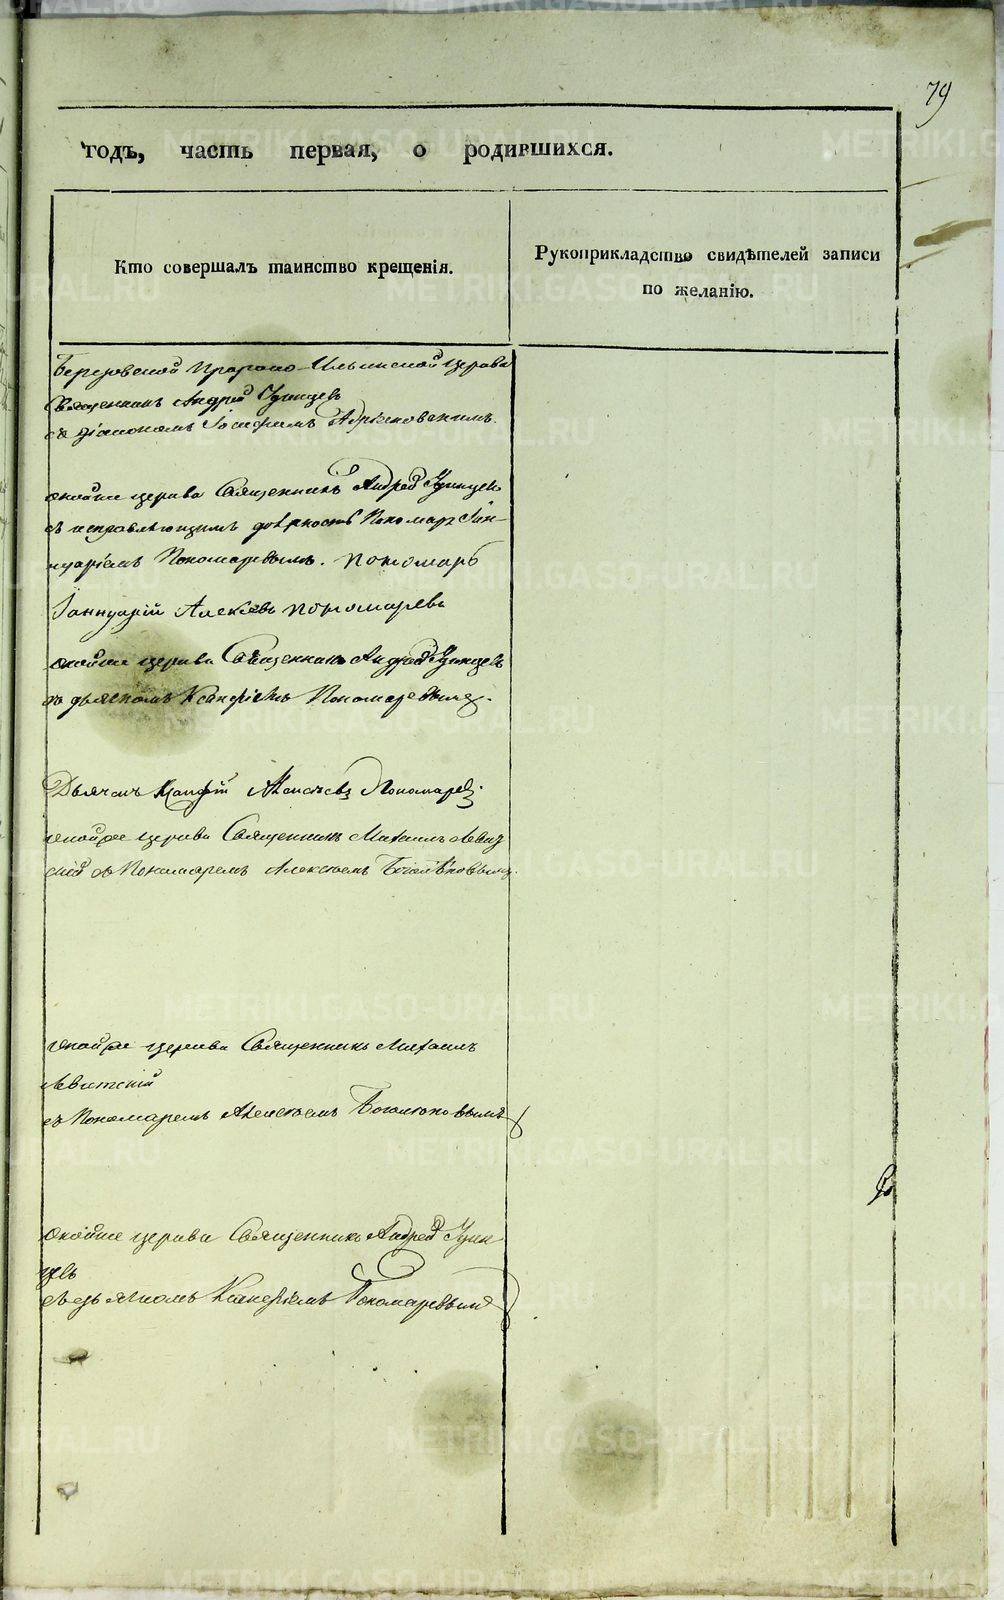 79
годъ, часть первая, о родившихся.
Кто совершалъ таинство крещенія.
Рукоприкладство свидѣтелей записи
по желанію.
Березовской Пророко-Ильинской церкви
Священникъ Андрей Удинцевъ
съ діакономъ Іосифомъ
тойже церкви Священникъ Андрей Удинцевъ
съ исправляющимъ должность Пономаря Іан-
нуаріемъ Пономаревымъ. Пономарь
Іаннуарій Алексѣевъ Пономаревъ
тойже церкви Священникъ Андрей Удинцевъ
съ дьячкомъ Ксанфіемъ Пономаревымъ.
Дьячекъ Ксанфій Алексѣевъ Пономаревъ.
тойже церкви Священникъ Михаилъ Левит
скій съ Пономаремъ Алексѣемъ Боголѣповымъ.
тойже церкви Священникъ Михаилъ
Левитскій
съ Пономаремъ Алексѣемъ Боголѣповымъ
тойже церкви Священникъ Андрей Удин
цевъ
съ дьячкомъ Ксанфіемъ Пономаревымъ
METRIKI.GASO-URAL.RU